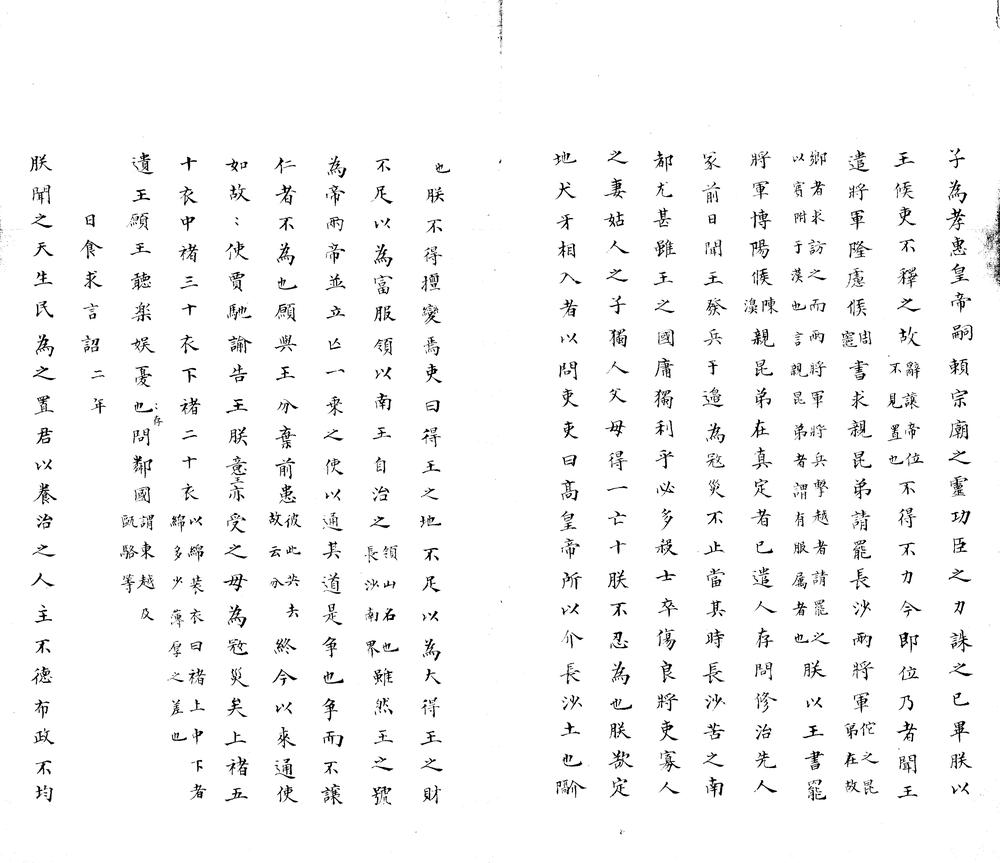 子為孝惠皇帝嗣頼宗廟之靈功臣之力誅之已畢朕以
王侯吏不釋之故辭讓帝位不見置也不得不力今即位乃者聞王
遣將軍隆慮侯周竈書求親昆弟請罷長沙兩將軍佗之昆弟在故
鄉者求訪之而兩將軍將兵擊越者請罷之以賓附于漢也言親昆弟者謂有服屬者也朕以王書罷
將軍博陽侯陳濞親昆弟在真定者已遣人存問修治先人
冢前日聞王發兵于邉為冦災不止當其時長沙苦之南
都尤甚雖王之國庸獨利乎必多殺士卒傷良將吏寡人
之妻姑人之子獨人父母得一亡十朕不忍為也朕欲定
地犬牙相入者以問吏吏曰高皇帝所以介長沙土也隔介
也朕不得擅變焉吏曰得王之地不足以為大得王之財
不足以為富服領以南王自治之領山名也長沙南界雖然王之號
為帝兩帝並立亡一乘之使以通其道是争也争而不讓
仁者不為也願與王分棄前患彼此共去故云分終今以來通使
如故〻使賈馳諭告王朕意王亦受之毋為冦災矣上褚五
十衣中褚三十衣下褚二十衣以綿裝衣曰褚上中下者綿多少薄厚之差也
遺王願王聽樂娛憂也〻存問鄰國謂東越及甌駱等
日食求言詔二年
朕聞之天生民為之置君以養治之人主不德布政不均